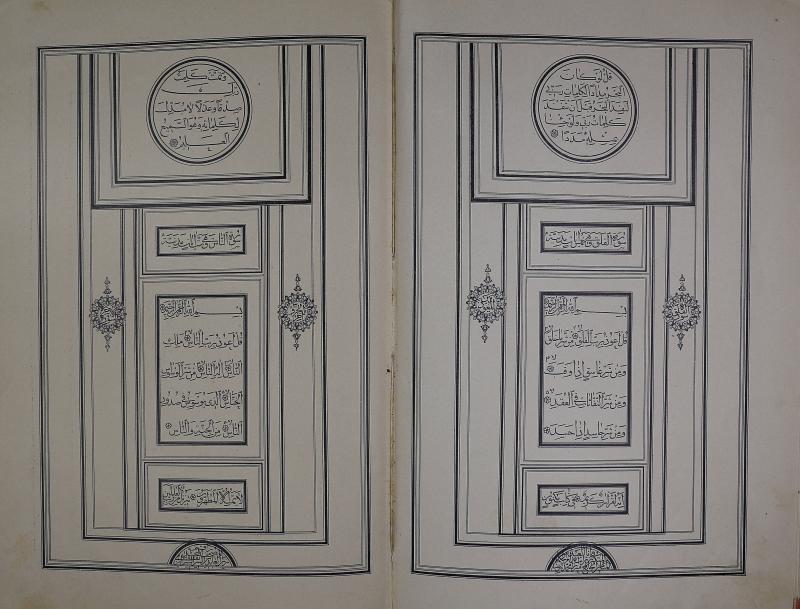 قل لو كان
البحر مدادا لكلمات ربي
لنفد البحر قبل ان تنفد
كلمات ربي ولو جئنا
بمثله مددا
سورة الفلق مدنية
بسم الله الرحمن الرحيم
قل اعوذ برب الفلق من شر ما خلق
ومن شر غاسق اذا وقب
ومن شر النفاثات في العقد
ومن شر حاسد اذا حسد
انه لقران كريم في كتاب مكنون
وتمت كلمت
ربك
صدقا وعدلا لا مبدل
لكلماته وهو السميع
العليم
سورة الناس مدنية
بسم الله الرحمن الرحيم
قل اعوذ برب الناس ملك
الناس اله الناس من شر الوسواس
الخناس الذي يوسوس في صدور
الناس من الجنة والناس
لا يمسه الا المطهرون تنزيل من رب العالمين